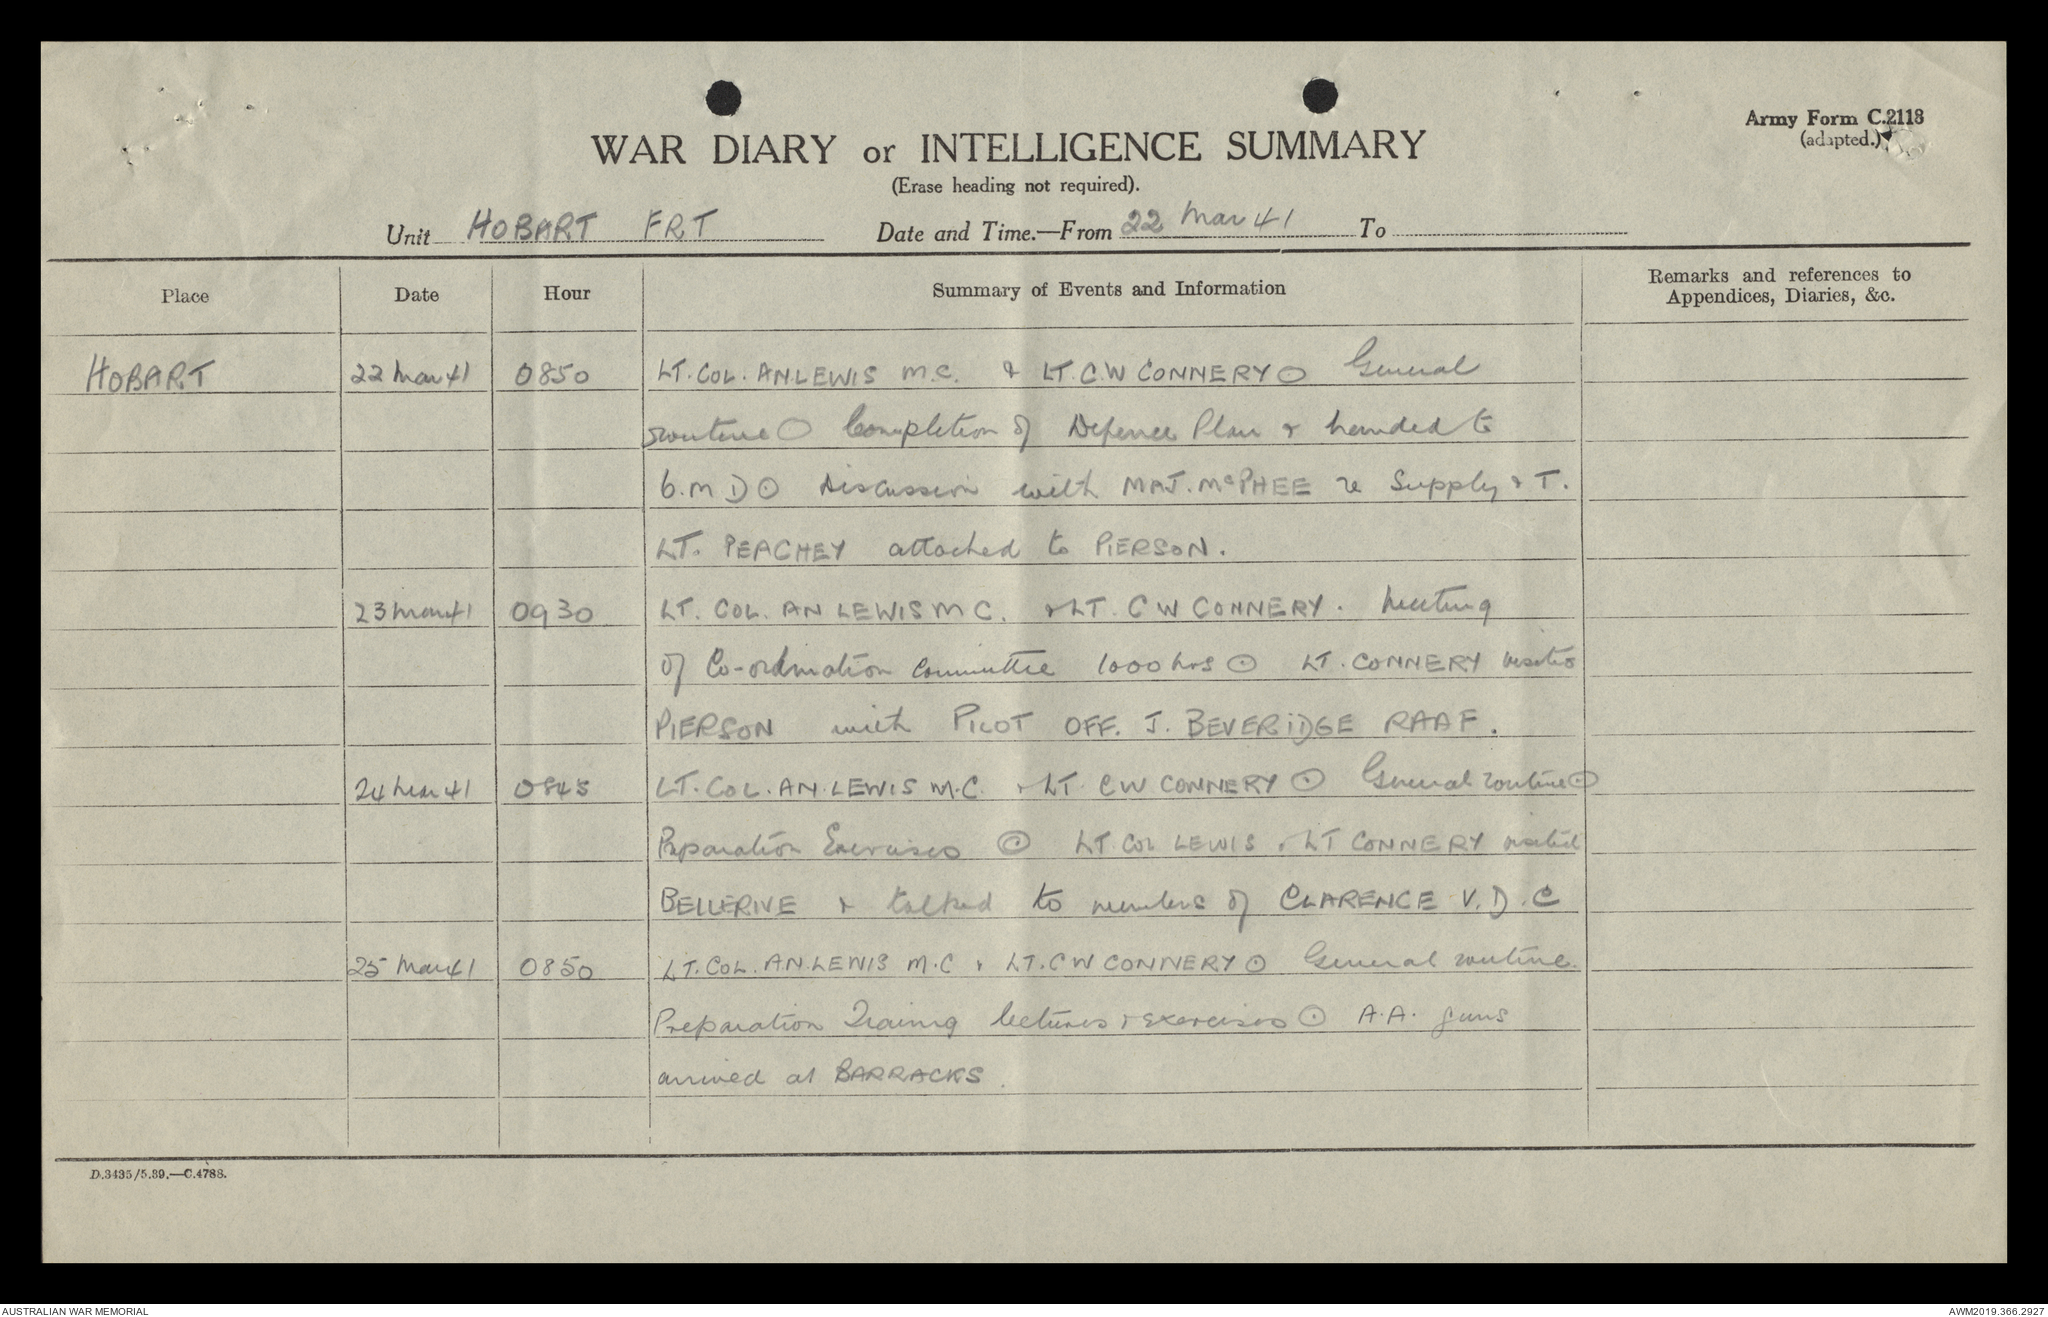 Army Form C.2118
(adapted.)
WAR DIARY or INTELLIGENCE SUMMARY
(Erase heading not required).
Unit HOBART FRT Date and Time.—From 22 Mar 41 To
Place Date Hour Summary of Events and Information Remarks and references to Appendices, Diaries, &c.
HOBART 22 Mar 41 0850 LT. COL. A.N. LEWIS M.C. & LT. C.W CONNERY ⊙ General
routine ⊙ Completion of Defence Plan & handed to
6.M D ⊙ Discussion with MAJ. McPHEE re Supply & T.
LT. PEACHEY attached to PIERSON.
23 Mar 41 0930 LT. COL. AN LEWIS M C. & LT. C W CONNERY. Meeting
of Co-ordination Committee 1000 hrs ⊙ LT. CONNERY visits
PIERSON with PILOT OFF. J. BEVERIDGE RAAF.
24 Mar 41 0845 LT. COL. A.N. LEWIS M.C. & LT CW CONNERY ⊙ General routine ⊙
Preparation Exercises ⊙ LT. COL LEWIS & LT CONNERY visited
BELLERIVE & talked to members of CLARENCE V.D.C
25 Mar 41 0850 LT. COL. A.N. LEWIS M.C & LT. C W CONNERY ⊙ General routine.
Preparation Training lectures & exercises ⊙ A.A. guns
arrived at BARRACKS.
D.3435/5.39.—C.4788.
AUSTRALIAN WAR MEMORIAL
AWM2019.366.2927